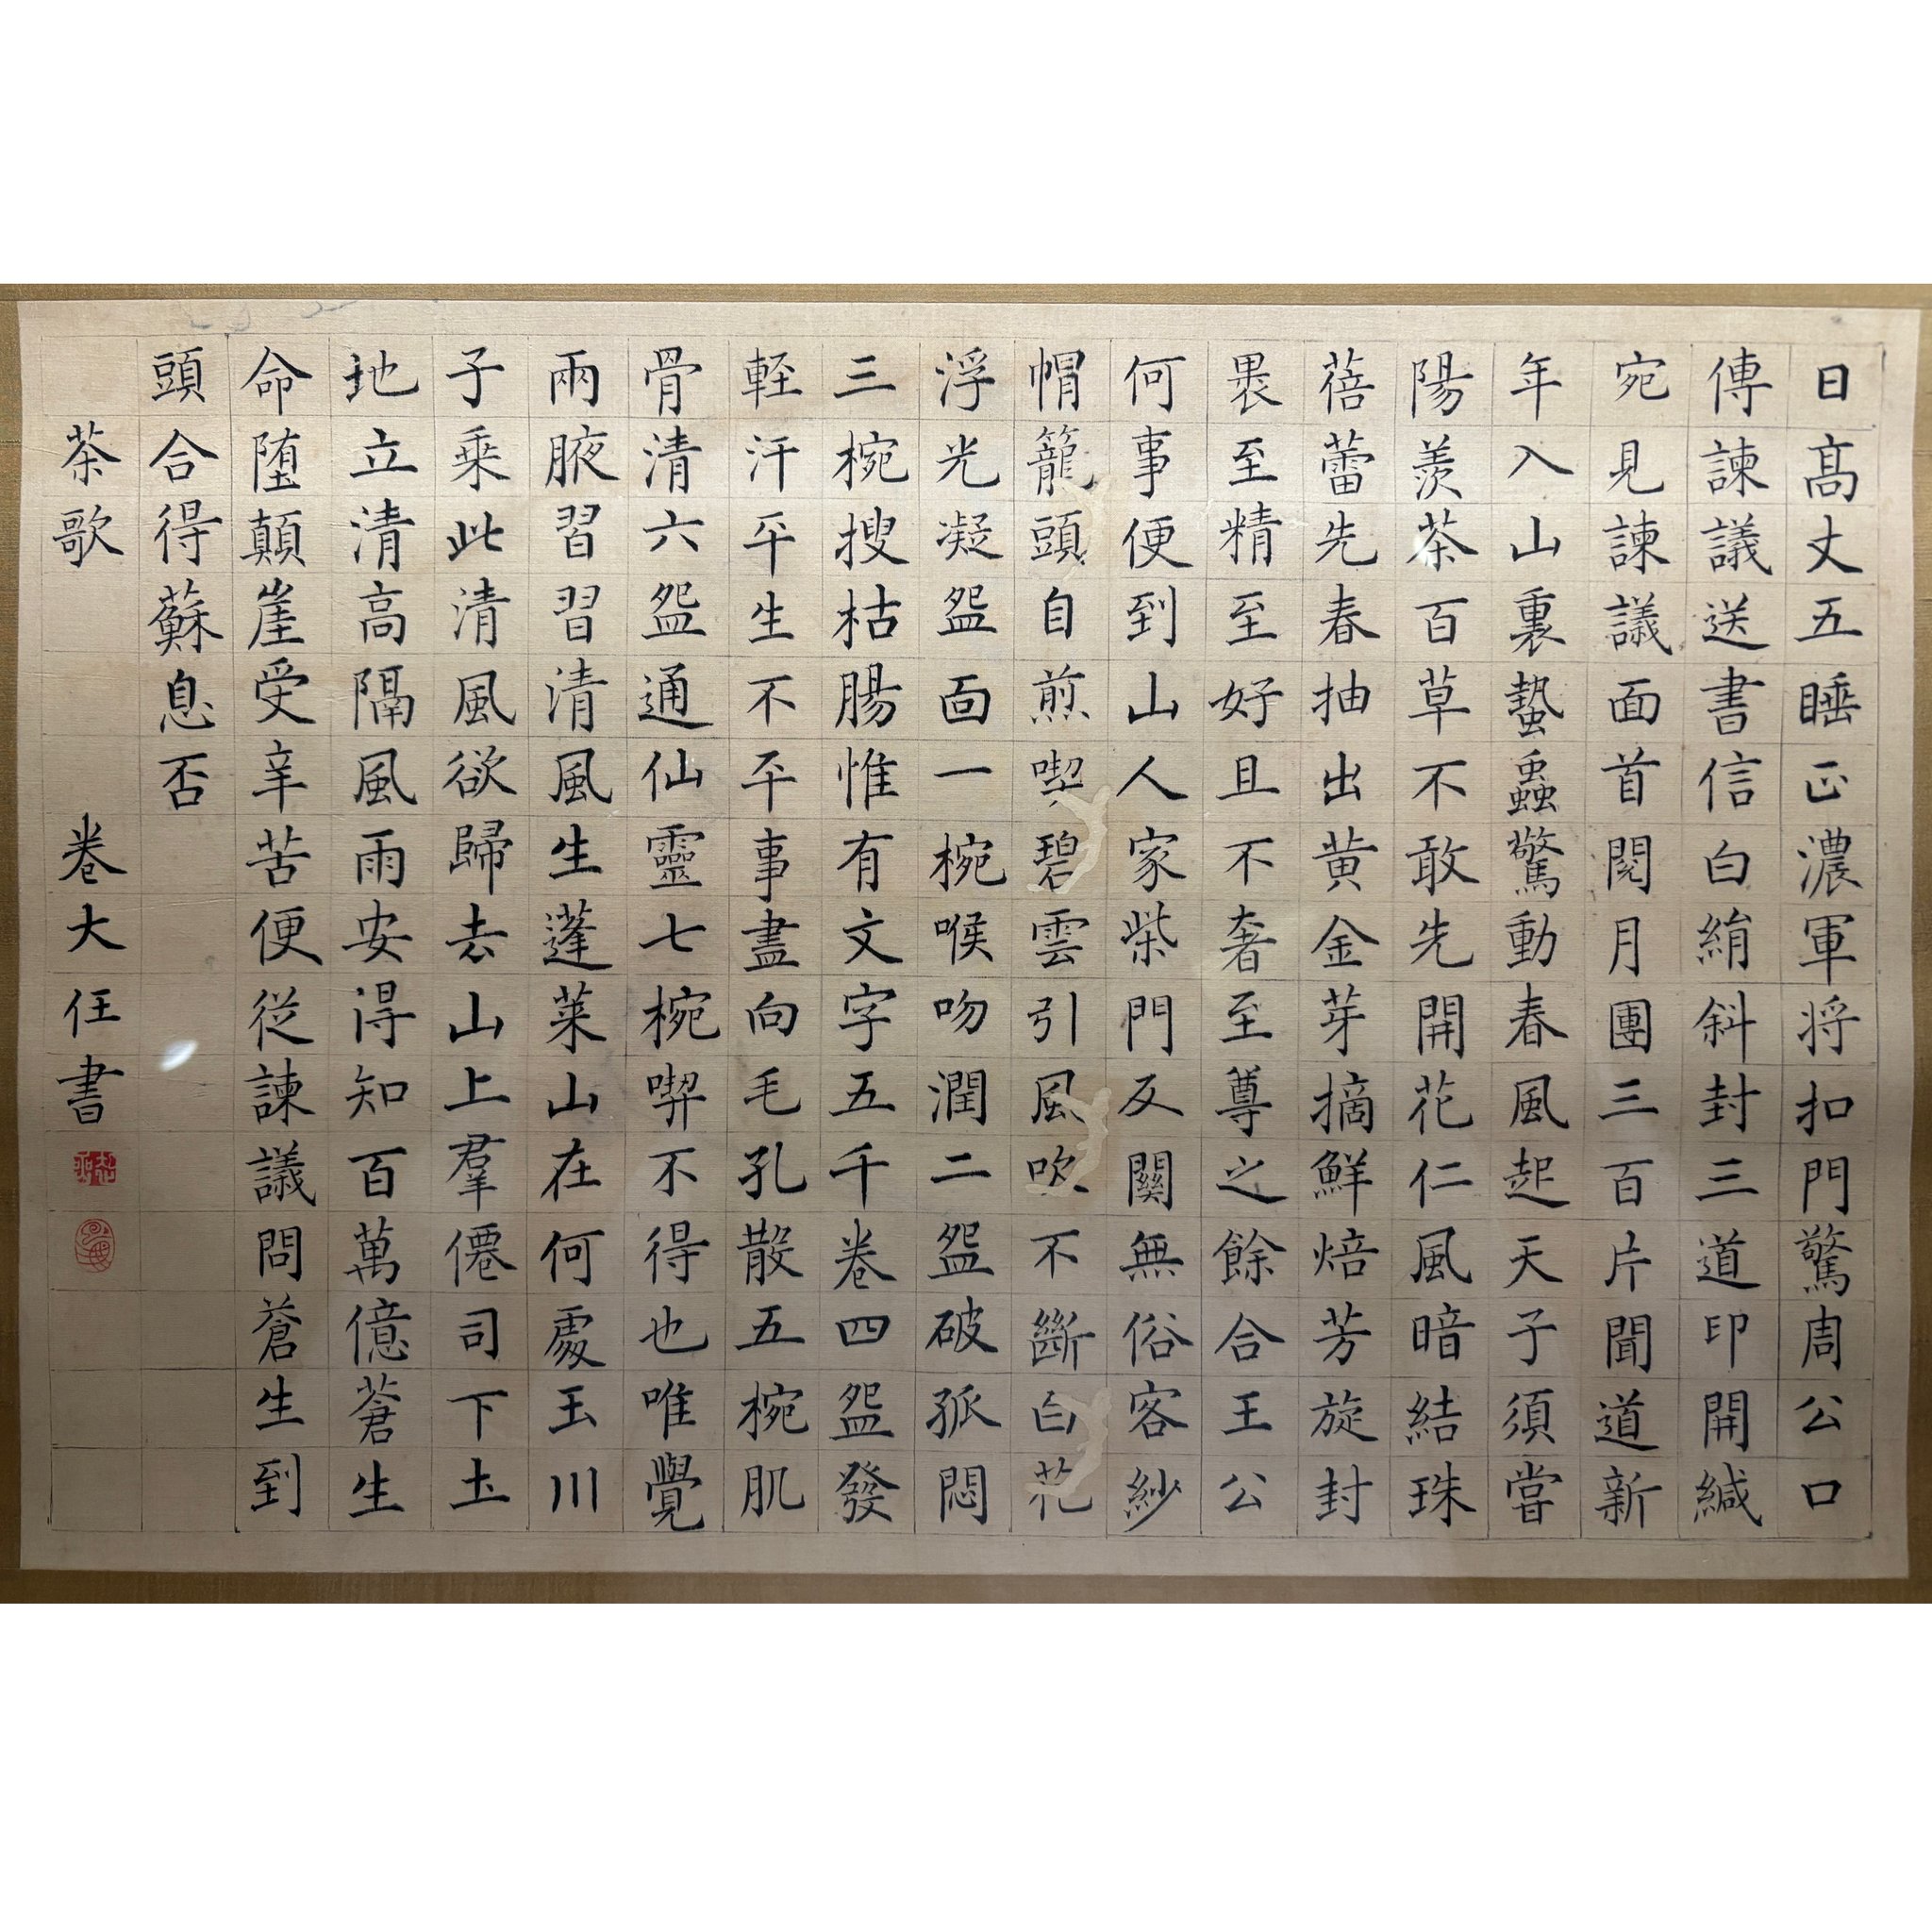 日髙丈五睡正濃軍将扣門驚周公口
傳諫議送書信白絹斜封三道印開緘
宛見諫議面首閱月團三百片聞道新
年入山裏蟄蟲驚動春風起天子須嘗
陽羨茶百草不敢先開花仁風暗結珠
蓓蕾先春抽出黄金芽摘鮮焙芳旋封
裹至精至好且不奢至尊之餘合王公
何事便到山人家柴門反關無俗客紗
帽籠頭自煎喫碧雲引風吹不斷白花
浮光凝盌面一椀喉吻潤二盌破孤悶
三椀搜枯腸惟有文字五千卷四盌發
軽汗平生不平事盡向毛孔散五椀肌
骨清六盌通仙靈七椀喫不得也唯覺
兩腋習習清風生蓬莱山在何處玉川
子乗此清風欲歸去山上羣僊司下土
地立清高隔風雨安得知百萬億蒼生
命堕顛崖受辛苦便從諫議問蒼生到
頭合得蘇息否
茶歌 卷大任書